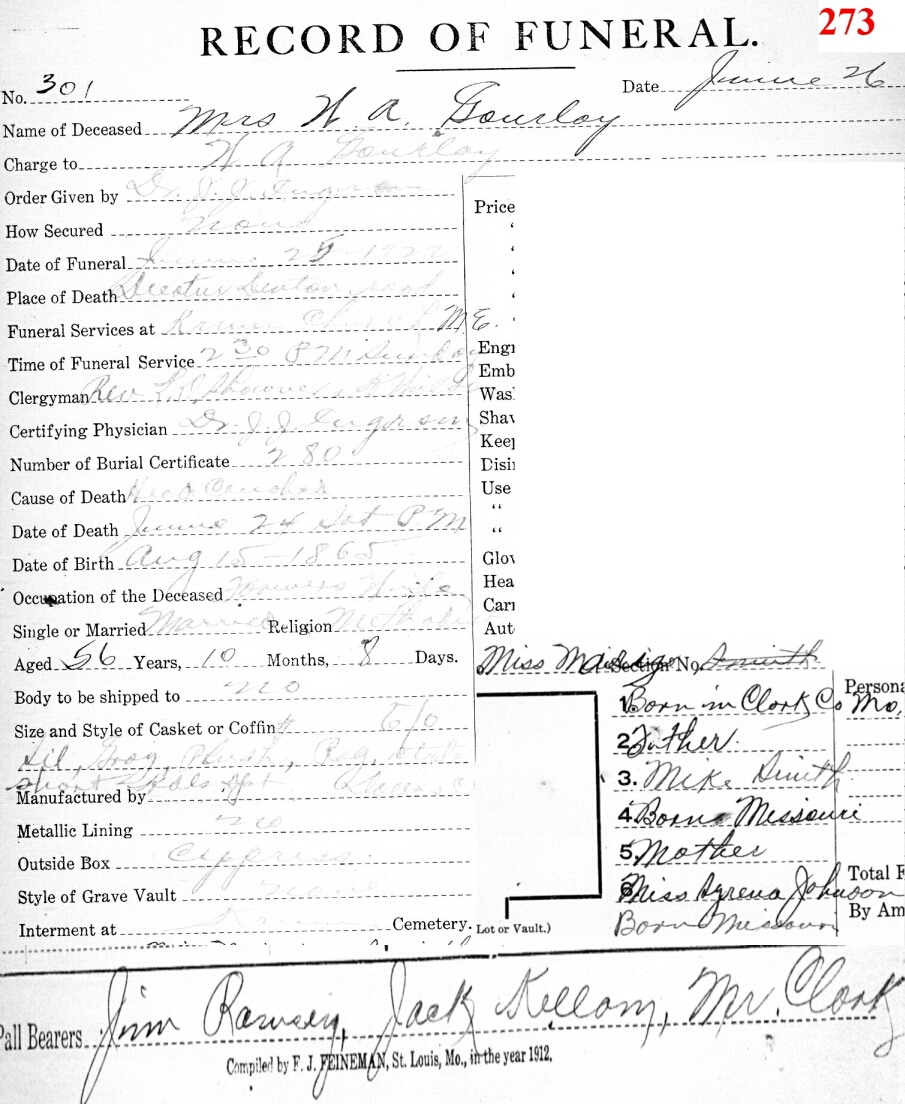 273
RECORD OF FUNERAL.
No. 301 Date June 26
Name of Deceased Mrs W A. Gourlay
Charge to W A Gourlay
Order Given by Dr. J. J. Ingram
How Secured
Price
Date of Funeral June 25 1922
Place of Death Decatur Denton road
Funeral Services at Krum Church M.E.
Time of Funeral Service 2 30 P M Sunday
Engr
Emb
Clergyman Rev
Was
Certifying Physician Dr. J. J. Ingram
Shav
Keep
Number of Burial Certificate 280
Disin
Cause of Death Head Crushed
Use
“
Date of Death June 24 Sat P M
“
Date of Birth Aug 15 - 1865
Glov
Hea
Occupation of the Deceased Farmers Wife
Carr
Single or Married Married Religion Methodist
Aut
Aged 56 Years, 10 Months, 8 Days.
Miss Section No. Smith
Body to be shipped to no
1. Born in Clork Co Mo,
Persona
Size and Style of Casket or Coffin 6/0
2. Father.
Sil, Gray, Plush,
3. Mike Smith
Manufactured by
4. Born Missouri
Metallic Lining no
5. Mother
Outside Box Cyppriss
6. Miss Syrena Johnson
Total F
Style of Grave Vault none
By Am
Interment at Krum Cemetery.
Lot or Vault.)
Born Missouri
Pall Bearers Jim Ramsey, Jack Kellom, Mr. Clork
Compiled by F. J. FEINEMAN, St. Louis, Mo., in the year 1912.